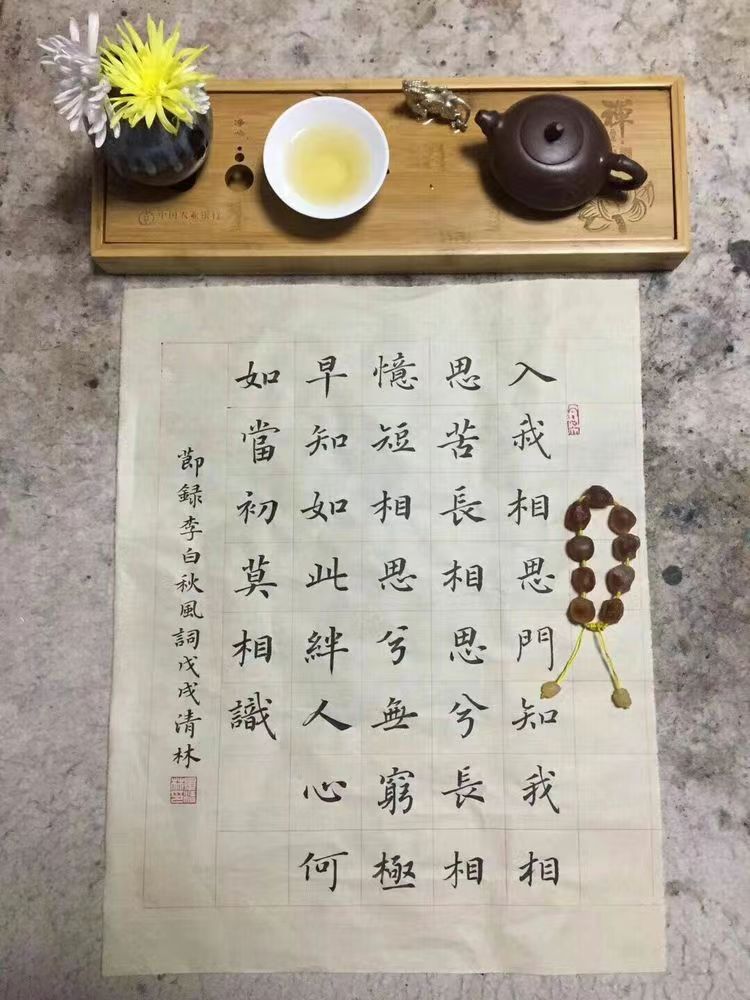 禪
中国农业银行
入我相思門知我相
思苦長相思兮長相
憶短相思兮無窮極
早知如此絆人心何
如當初莫相識
莭録李白秋風詞戊戌清林